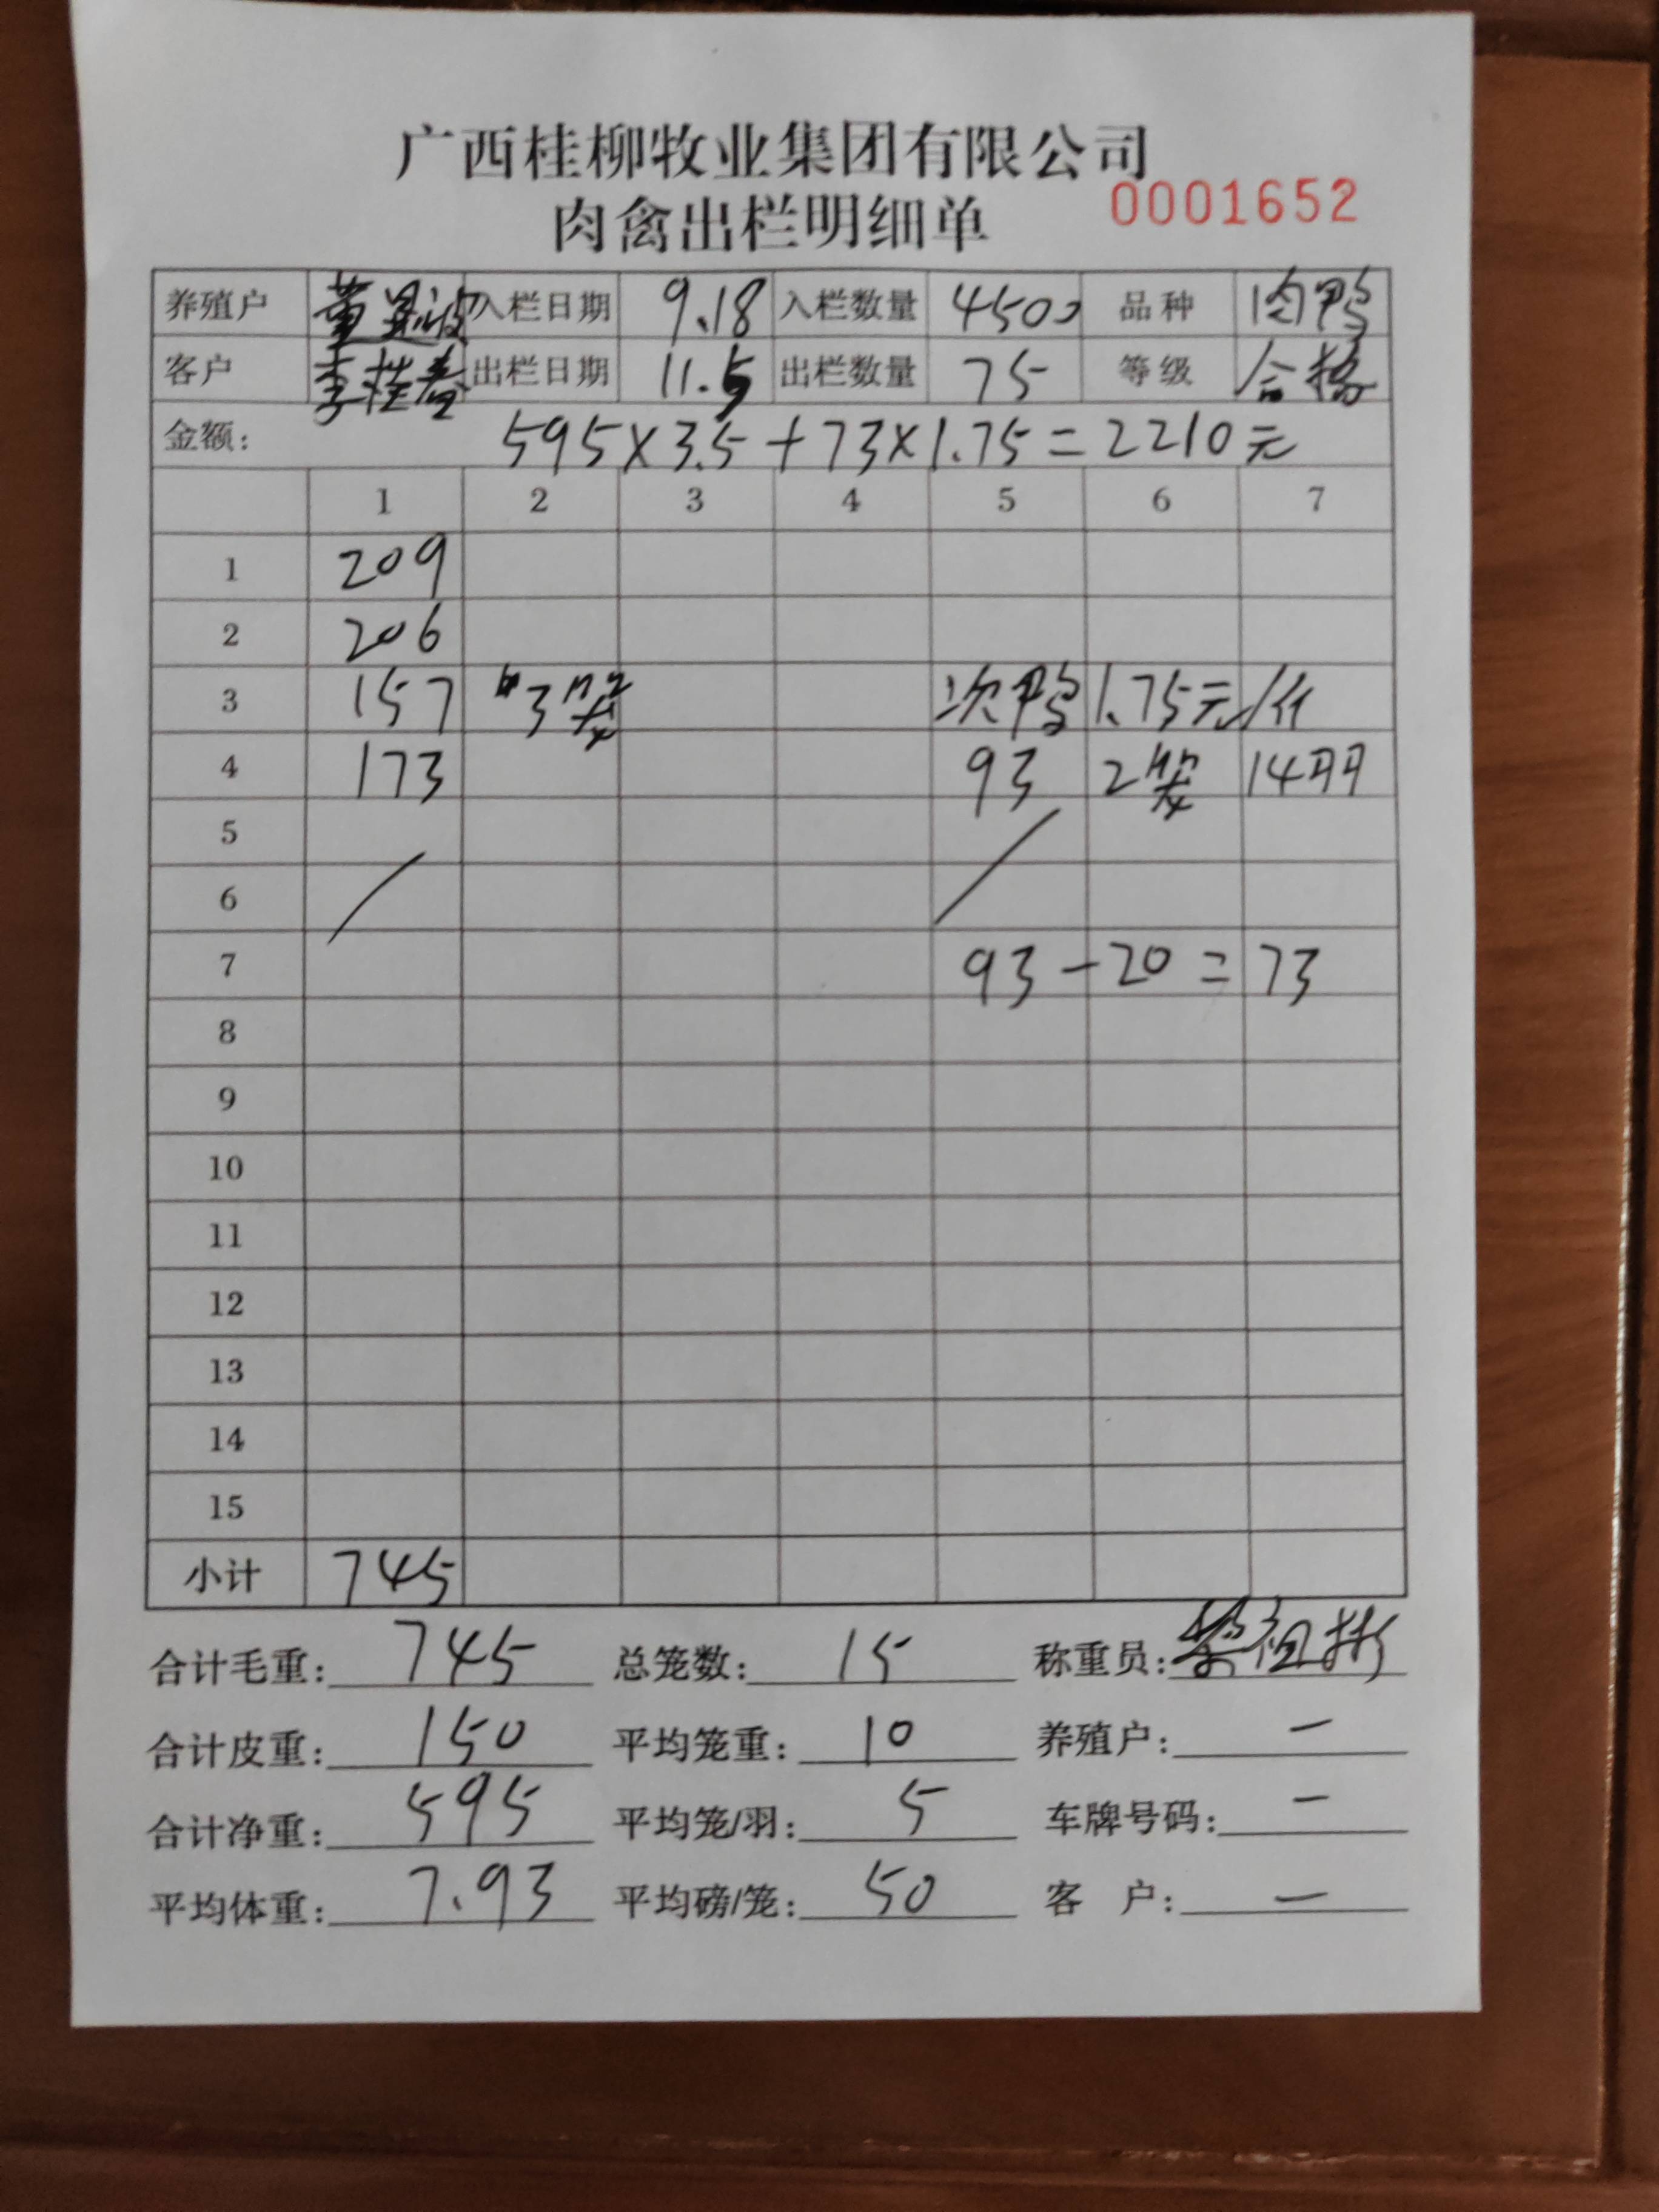 广西桂柳牧业集团有限公司
肉禽出栏明细单 0001652
养殖户 董 入栏日期 9.18 入栏数量 4500 品种 肉鸭
客户 李桂春 出栏日期 11.5 出栏数量 75 等级 合格
金额: 595×3.5+73×1.75=2210元
1 2 3 4 5 6 7
1 209
2 206
3 157 3笼 次鸭 1.75元/斤
4 173 93 2笼 14羽
5
6
7 93-20=73
8
9
10
11
12
13
14
15
小计 745
合计毛重: 745 总笼数: 15 称重员:
合计皮重: 150 平均笼重: 10 养殖户: —
合计净重: 595 平均笼/羽: 5 车牌号码: —
平均体重: 7.93 平均磅/笼: 50 客 户: —